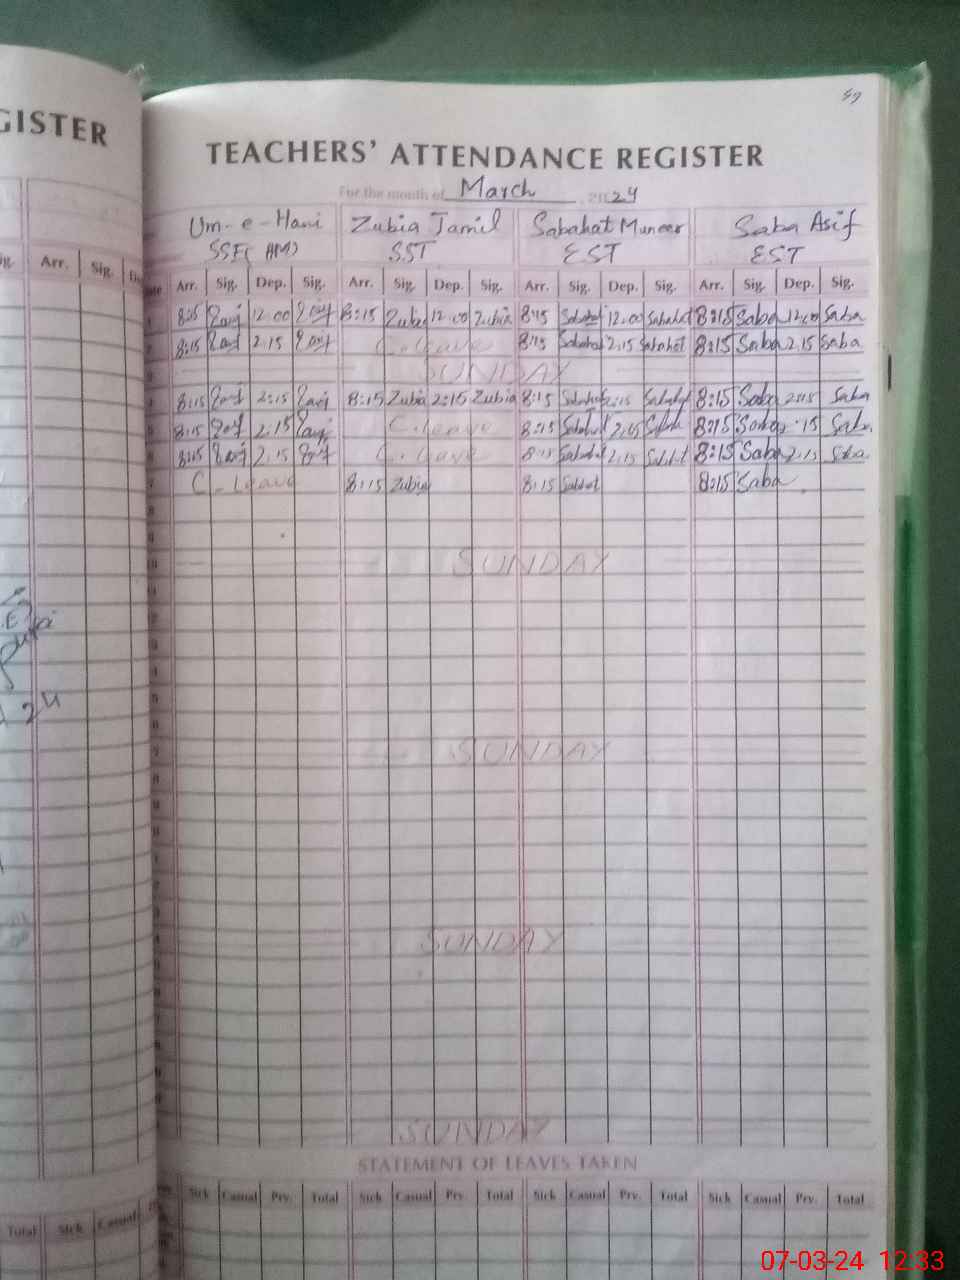 GISTER
57
TEACHERS' ATTENDANCE REGISTER
For the month of March 2024
Um-e-Hani Zubia Jamil Sabahat Muneer Saba Asif
SST EST EST
ig. Arr. Sig. Arr. Sig. Dep. Sig. Arr. Sig. Dep. Sig. Arr. Sig. Dep. Sig. Arr. Sig. Dep. Sig.
8:15 12.00 8:15 Zubia 12.00 Zubia 8:15 Sabahat 12.00 Sabahat 8:15 Saba 12.00 Saba
8:15 2.15 C.leave 8:15 Sabahat 2.15 Sabahat 8:15 Saba 2.15 Saba
SUNDAY
8:15 2:15 8:15 Zubia 2:15 Zubia 8:15 Sabahat 2:15 Sabahat 8:15 Saba 2:15 Saba
8:15 2.15 C.leave 8:15 Sabahat 2.15 8:15 Saba 2.15 Saba
8:15 2.15 C.leave 8:15 Sabahat 2.15 Sabahat 8:15 Saba 2.15 Saba
C.Leave 8:15 Zubia 8:15 Sabahat 8:15 Saba
SUNDAY
SUNDAY
SUNDAY
SUNDAY
STATEMENT OF LEAVES TAKEN
Total Sick Casual Sick Casual Prv. Total Sick Casual Prv. Total Sick Casual Prv. Total Sick Casual Prv. Total
07-03-24 12:33